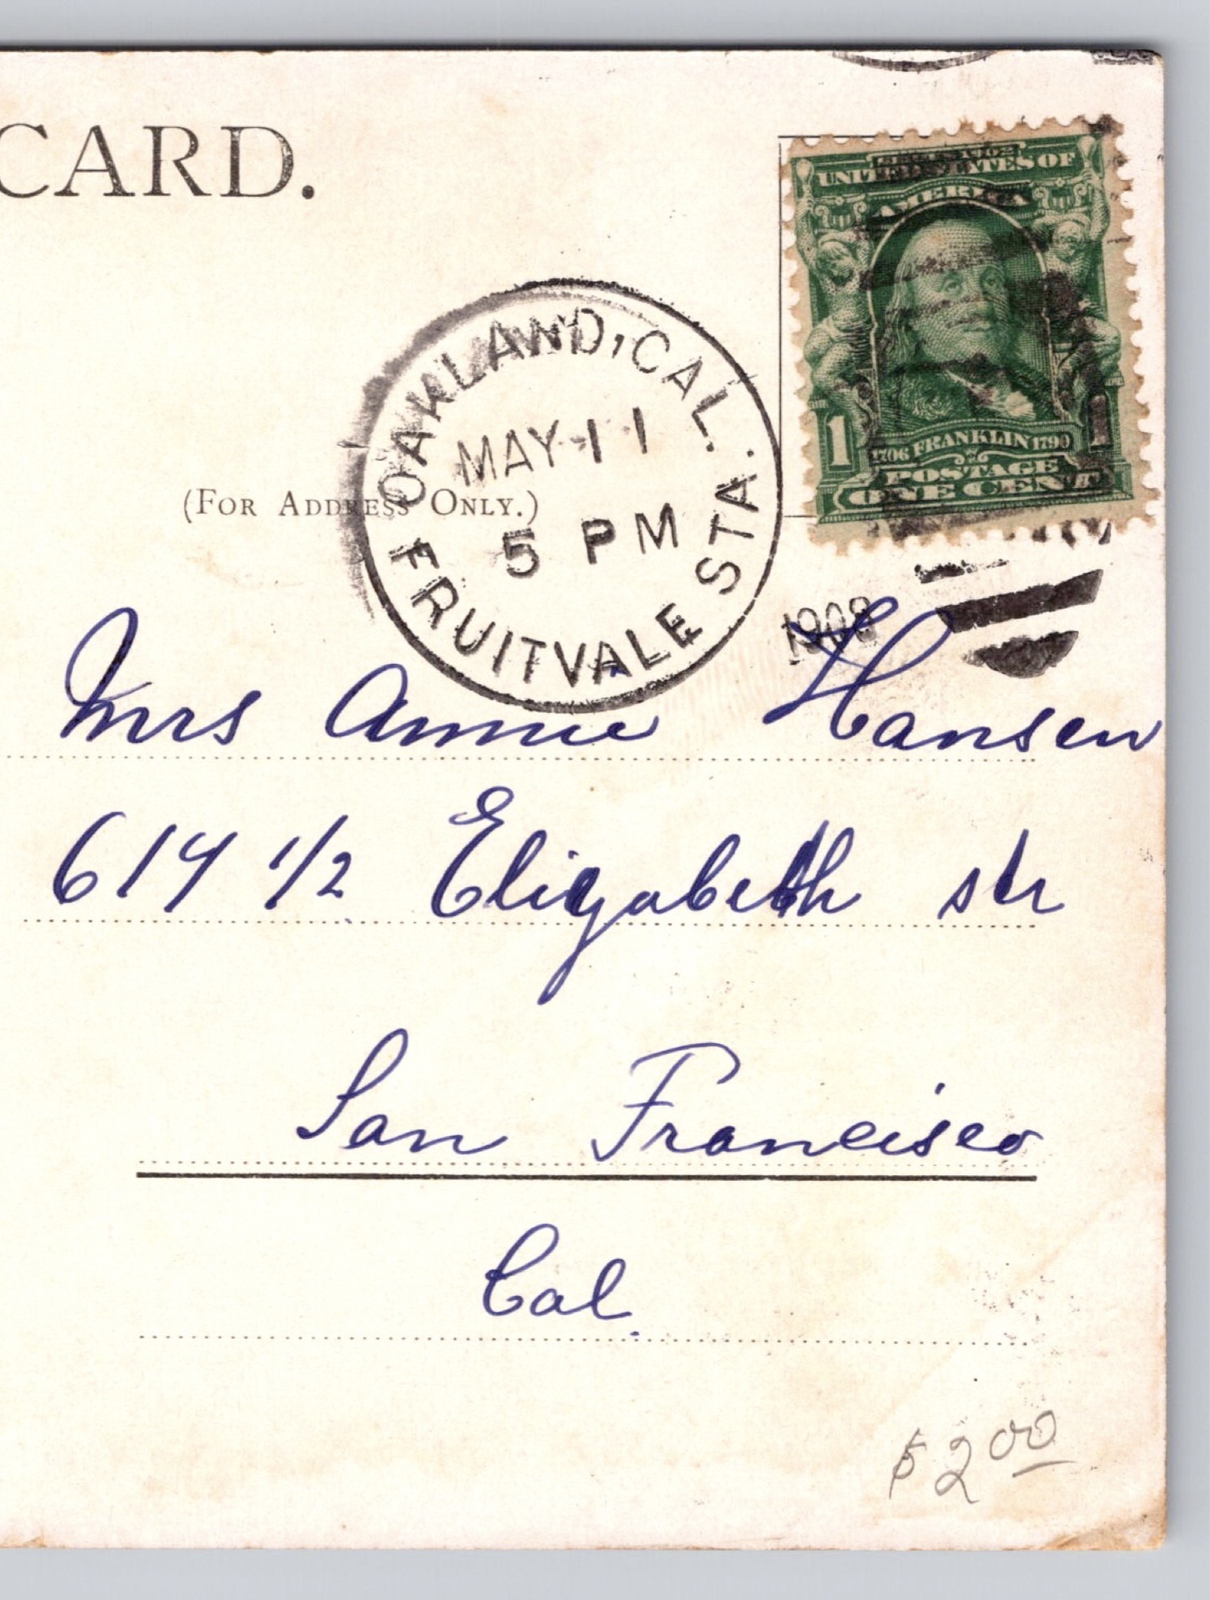 CARD.
SERIES 1902
UNITED STATES OF
AMERICA
OAKLAND, CAL.
MAY 11
5 PM
FRUITVALE STA.
1908
1 1
1706 FRANKLIN 1790
POSTAGE
ONE CENT
(FOR ADDRESS ONLY.)
Mrs Annie Hansen
614 1/2 Elizabeth str
San Francisco
Cal.
$2.00